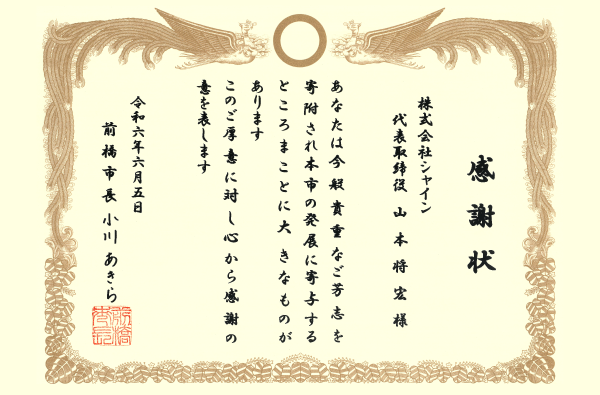 感謝状
株式会社シャイン
代表取締役 山本将宏様
あなたは今般貴重なご芳志を
寄附され本市の発展に寄与する
ところまことに大きなものが
あります
このご厚意に対し心から感謝の
意を表します
令和六年六月五日
前橋市長 小川あきら
前橋市長